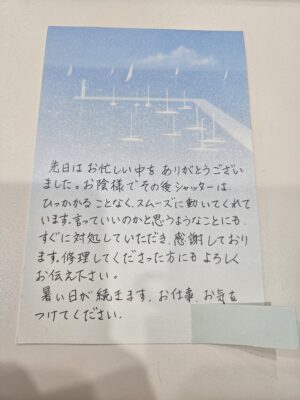 先日はお忙しい中をありがとうござい
ました。お陰様でその後シャッターは、
ひっかかることなく、スムーズに動いてくれて
います。言っていいのかと思うようなことにも、
すぐに対処していただき、感謝しており
ます。修理してくださった方にもよろしく
お伝え下さい。
暑い日が続きます、お仕事、お気を
つけてください。